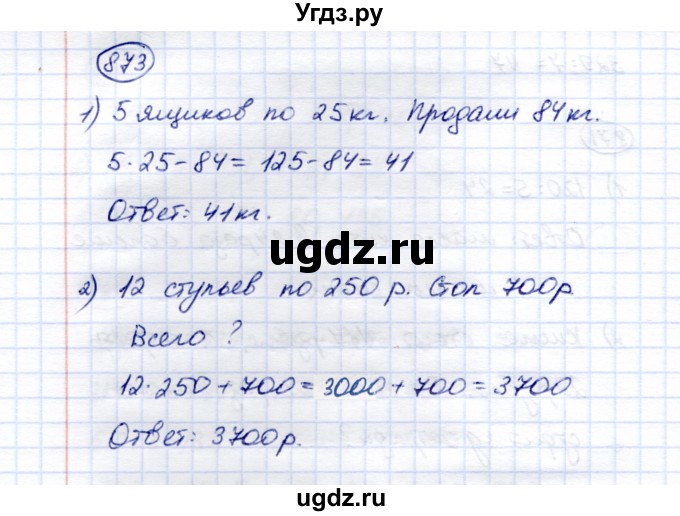 Угдз.ру
873
1) 5 ящиков по 25кг. Продали 84кг.
5·25-84= 125-84= 41
Ответ: 41кг.
ugdz.ru
2) 12 стульев по 250 р. Стол 700р.
Всего ?
12·250+700=3000+700=3700
Ответ: 3700р.
ugdz.ru
ugdz.ru